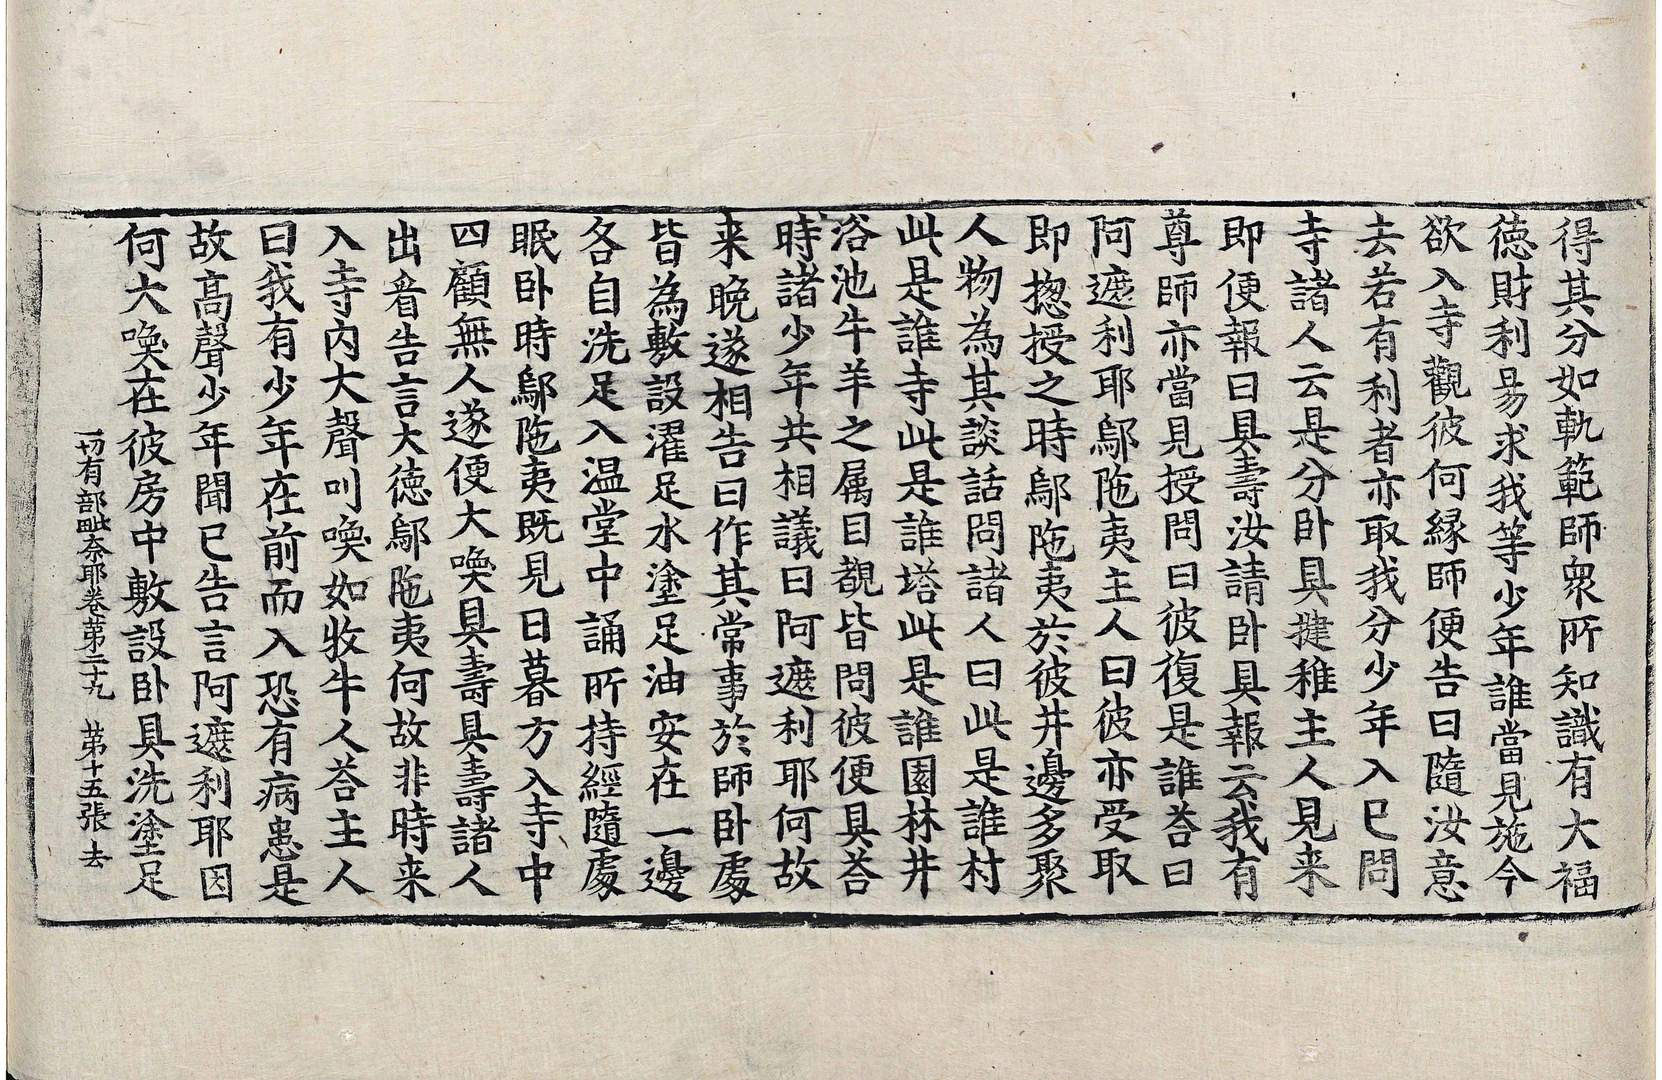 得其分如軌範師衆所知識有大福
德財利易求我等少年誰當見施今
欲入寺觀彼何緣師便告曰隨汝意
去若有利者亦取我分少年入已問
寺諸人云是分卧具揵稚主人見来
即便報曰具壽汝請卧具報云我有
尊師亦當見授問曰彼復是誰荅曰
阿遮利耶鄔陁夷主人曰彼亦受取
即揔授之時鄔陁夷於彼井邊多聚
人物為其談話問諸人曰此是誰村
此是誰寺此是誰塔此是誰園林井
浴池牛羊之属目覩皆問彼便具荅
時諸少年共相議曰阿遮利耶何故
来晚遂相告曰作其常事於師卧處
皆為敷設濯足水塗足油安在一邊
各自洗足入温堂中誦所持經隨處
眠卧時鄔陁夷既見日暮方入寺中
四顧無人遂便大喚具壽具壽諸人
出看告言大德鄔陁夷何故非時来
入寺内大聲叫喚如牧牛人荅主人
曰我有少年在前而入恐有病患是
故高聲少年聞已告言阿遮利耶因
何大喚在彼房中敷設卧具洗塗足
一切有部毗奈耶卷苐二十九 苐十五張 去